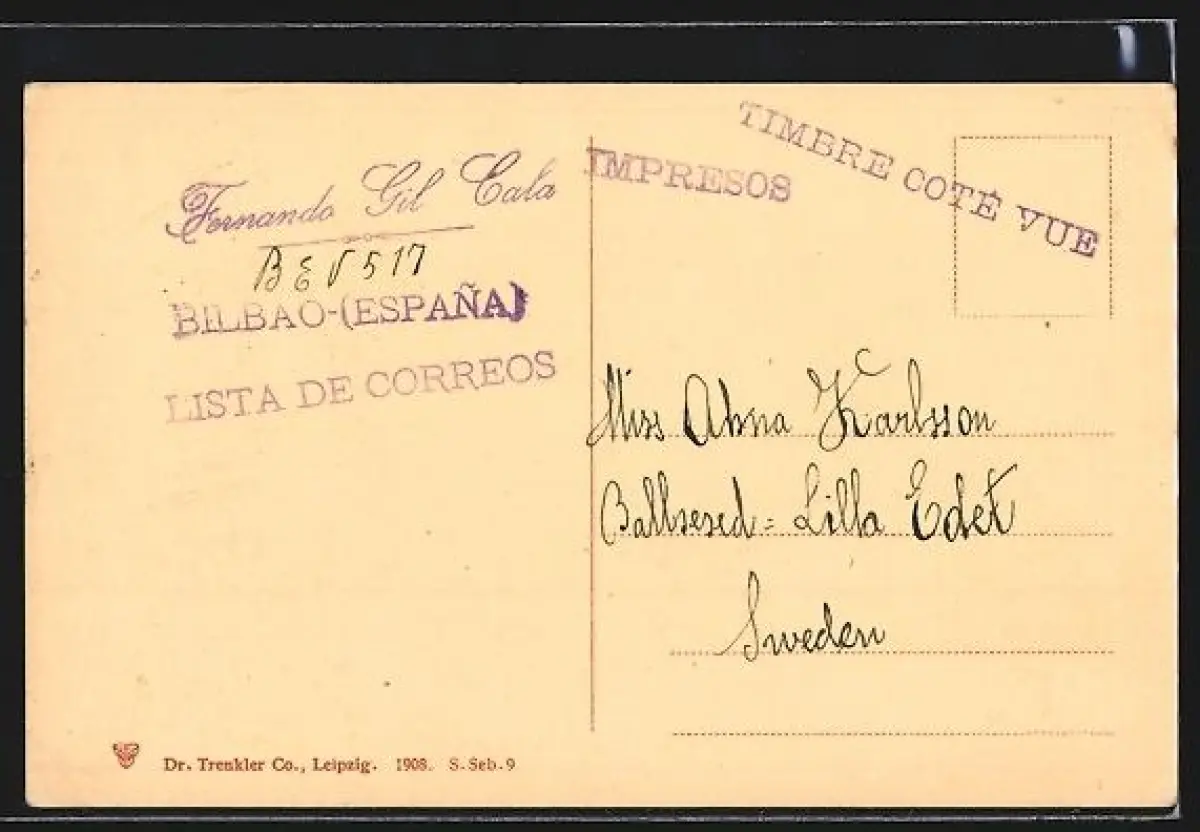 Fernando Gil Cala
BEV 517
BILBAO-(ESPAÑA)
LISTA DE CORREOS
IMPRESOS
TIMBRE COTÉ VUE
Miss Karlsson
Lilla Edet
Sweden
Dr. Trenkler Co., Leipzig. 1908. S. Seb. 9